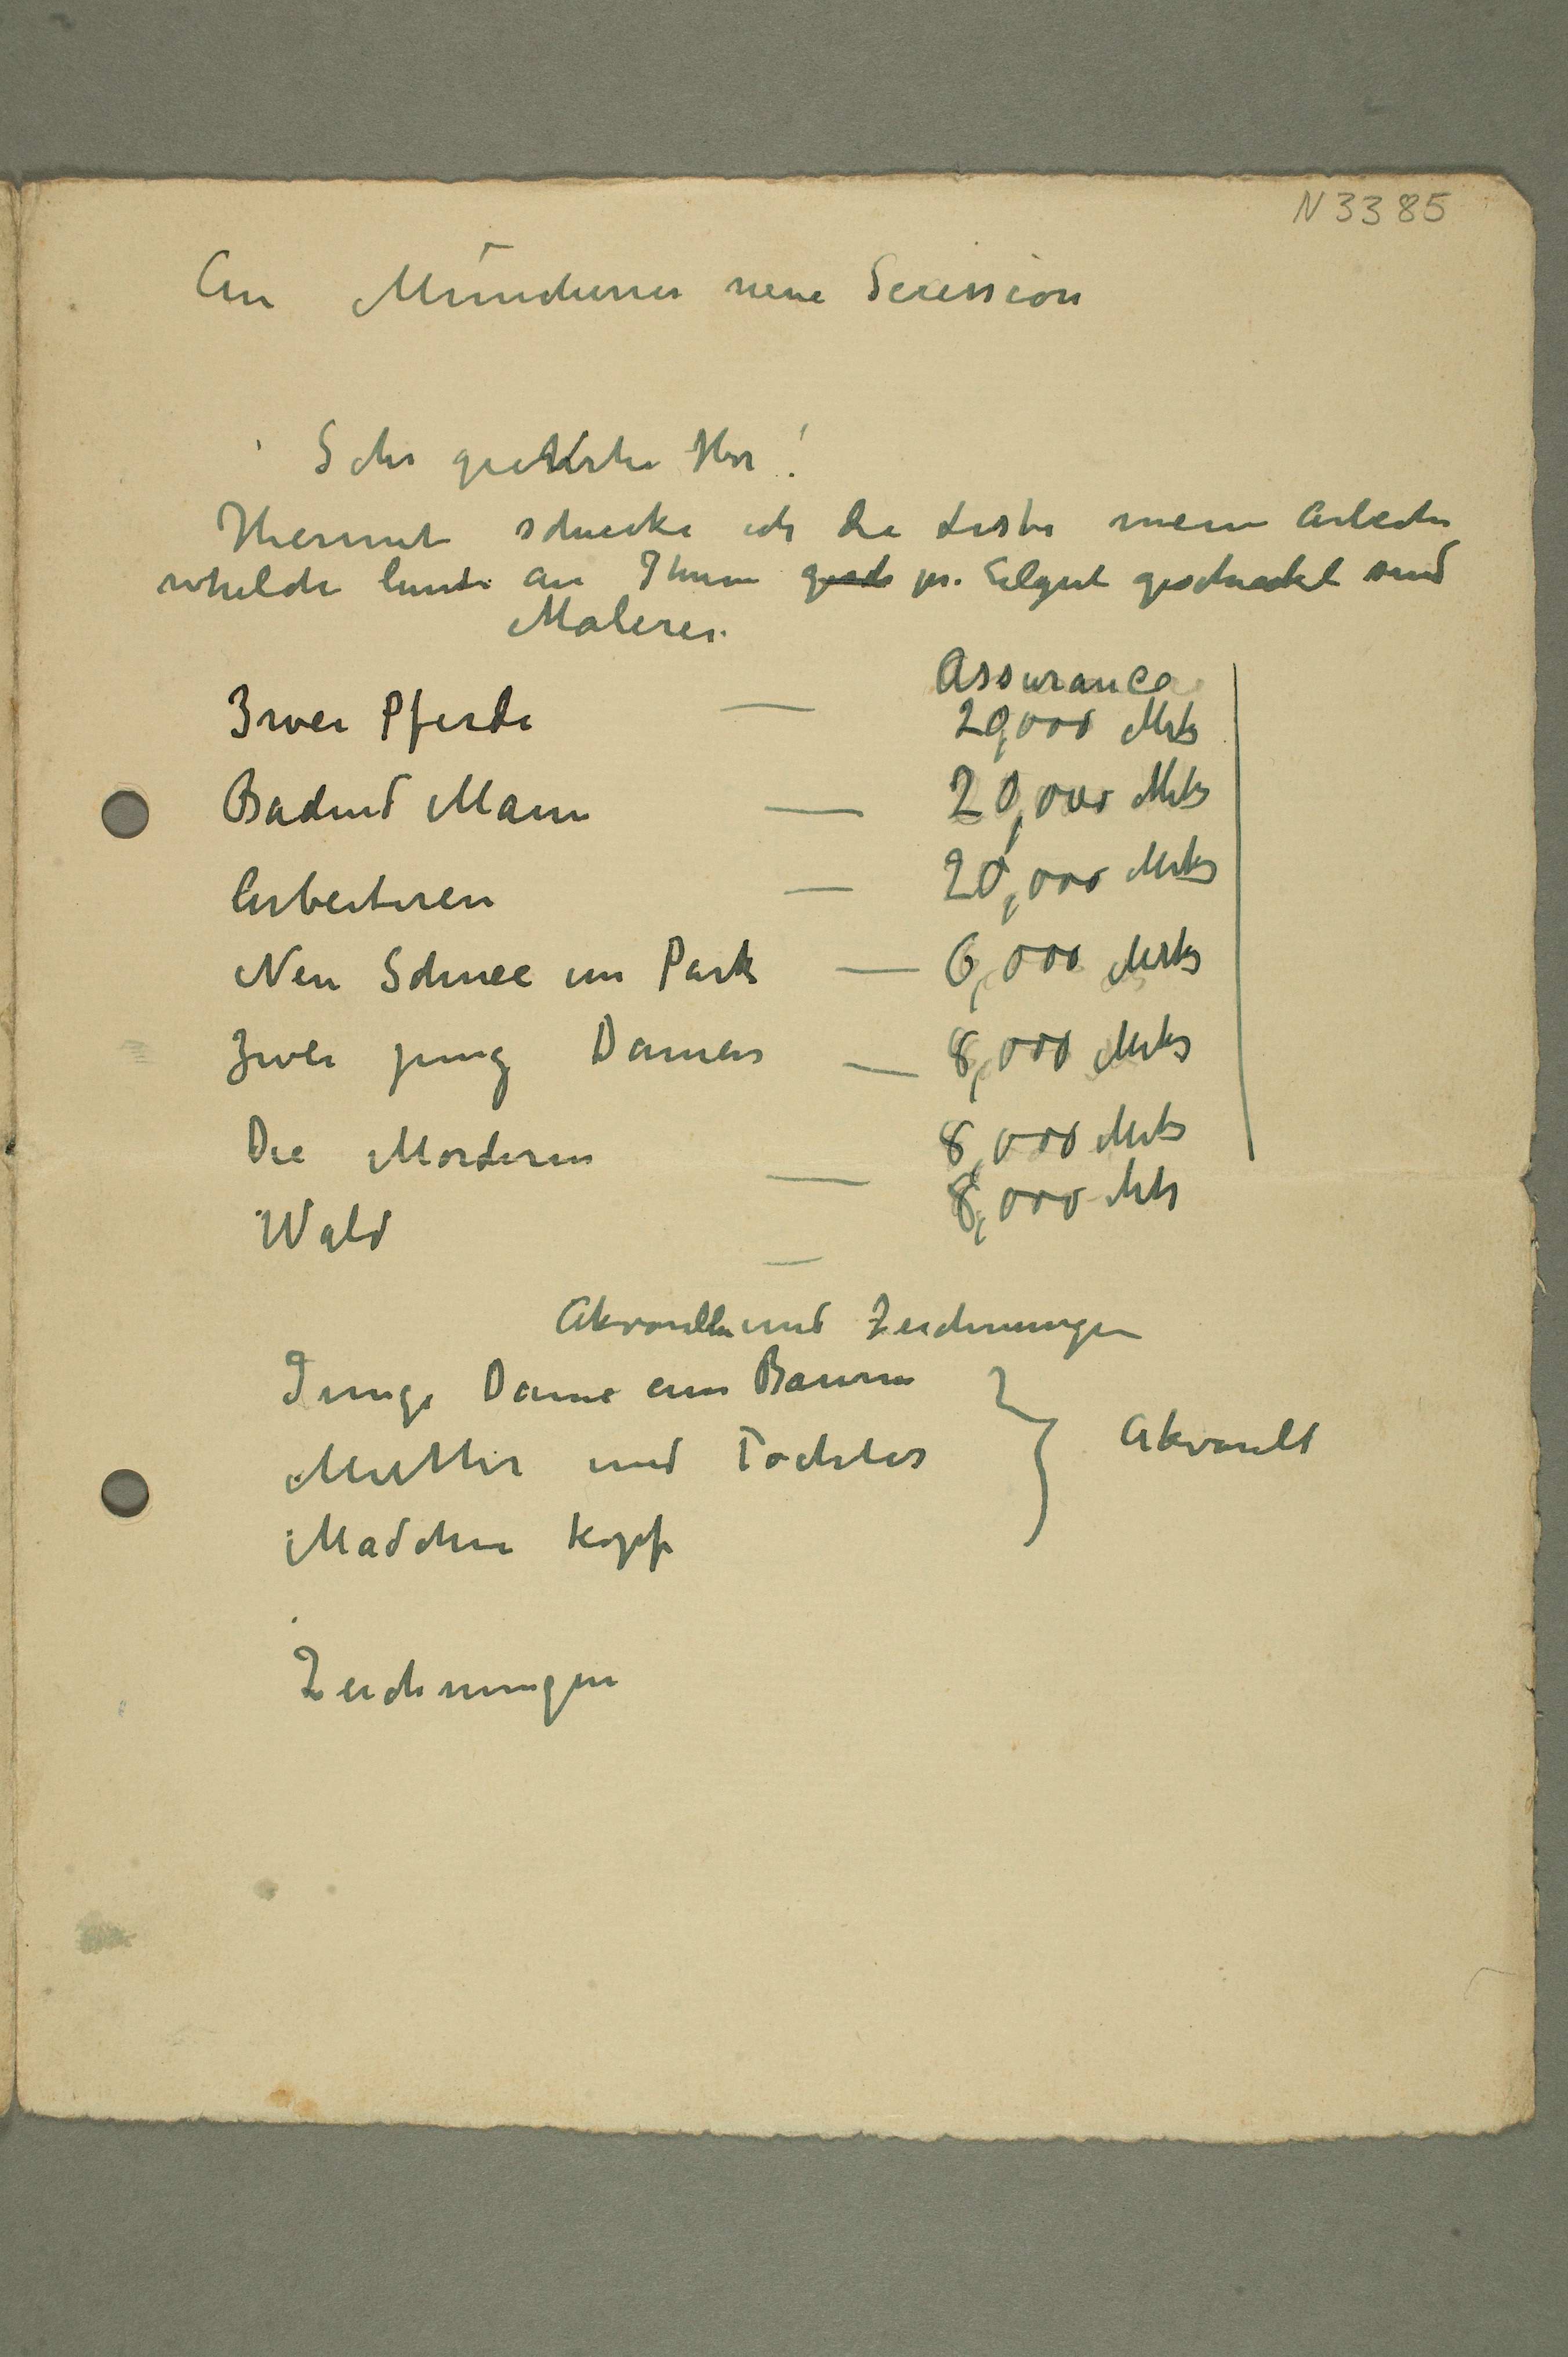 N 3385
An Münchener neue Secession
Sehr geehrter Herr!
Hiermit schicke ich die Liste mein Arbeiten
whelche heute an Ihnen gesch pr. Eilgut geschickt sind
Malerei
Assurance
Zwei Pferde — 20,000 Mrk
Badend Mann — 20,000 Mrk
Arbeiteren — 20,000 Mrk
Neu Schnee im Park — 6,000 Mrk
Zwei jung Damen — 8,000 Mrk
Die Morderin — 8,000 Mrk
Wald — 8,000 Mrk
Akvarelle und Zeichnungen
Junge Dame am Baum
Mutter und Tochter } Akvarell
Madchen kopf
Zeichnungen